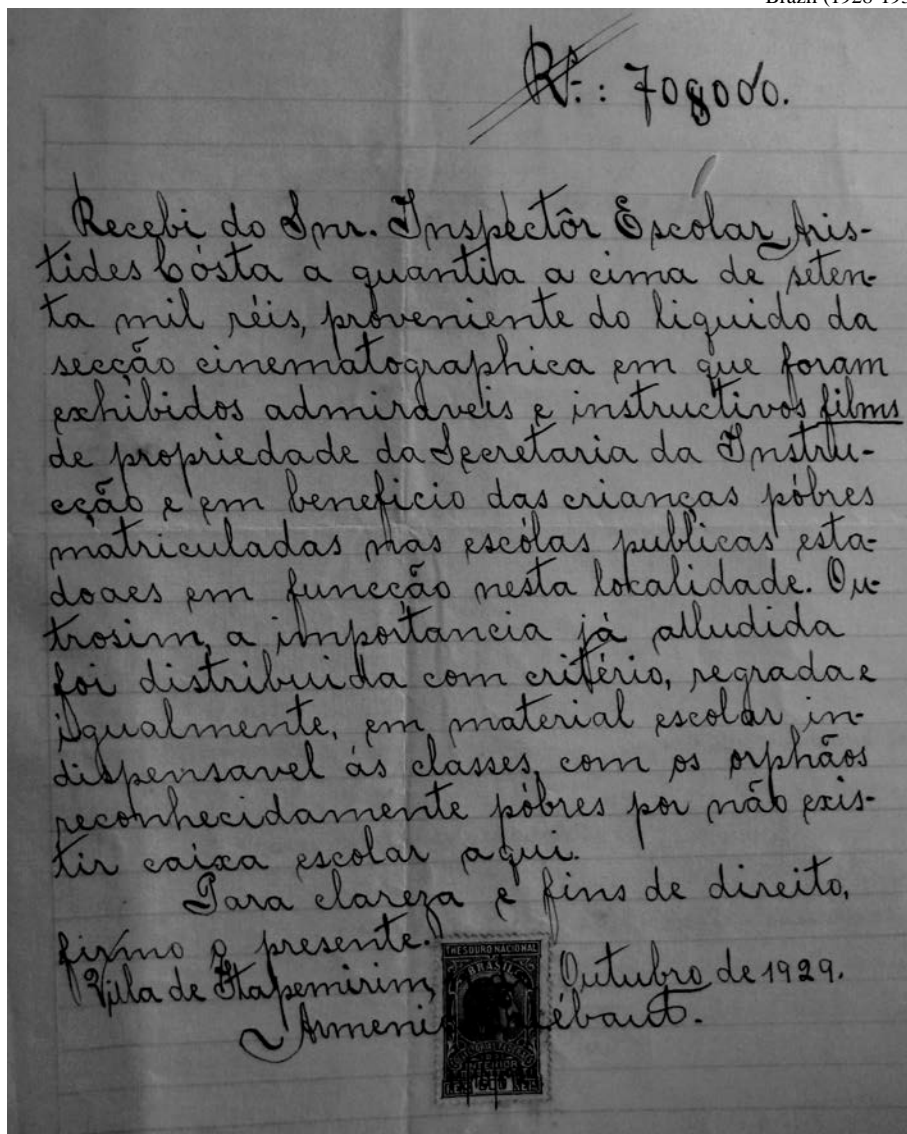 Brazil (1928-193
Rs.: 70$000.
Recebi do Snr. Inspectôr Escólar Aris-
tides Cósta a quantia a cima de seten-
ta mil réis, proveniente do liquido da
secção cinematographica em que foram
exhibidos admiráveis e instructivos films
de propriedade da Secretaria da Instru-
cção e em beneficio das crianças póbres
matriculadas nas escólas publicas esta-
doaes em funcção nesta localidade. Ou-
trosim, a importancia já alludida
foi distribuida com critério, regrada e
igualmente, em material escolar in-
dispensavel ás classes, com os orphãos
reconhecidamente póbres por não exis-
tir caixa escolar aqui.
Para clareza e fins de direito,
firmo o presente.
THESOURO NACIONAL
BRASIL
Villa de Itapemirim, Outubro de 1929.